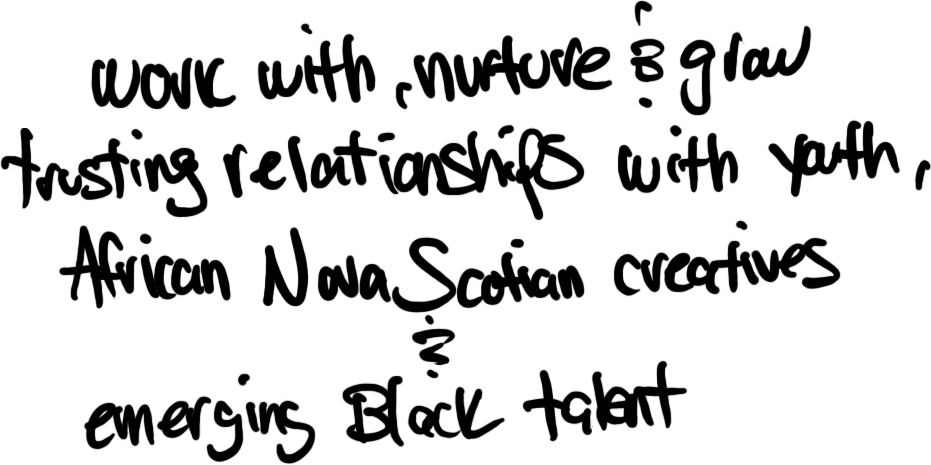 work with, nurture & grow
trusting relationships with youth,
African Nova Scotian creatives
&
emerging Black talent